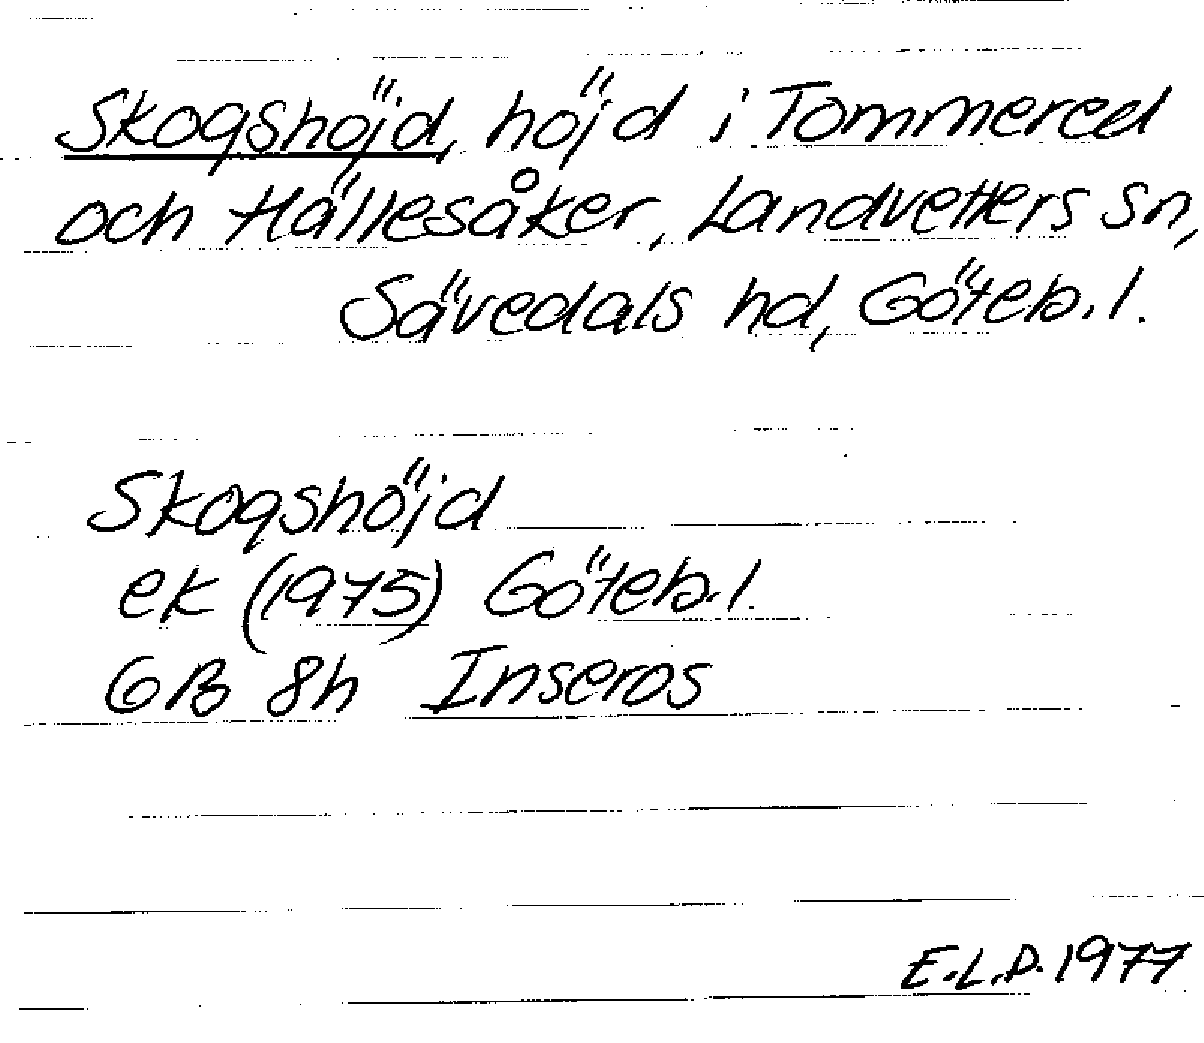 Skogshöjd, höjd i Tommered
och Hällesåker, Landvetters sn,
Sävedals hd, Göteb.l.
Skogshöjd
ek (1975) Göteb.l.
6B 8h Inseros
E.L.D. 1977